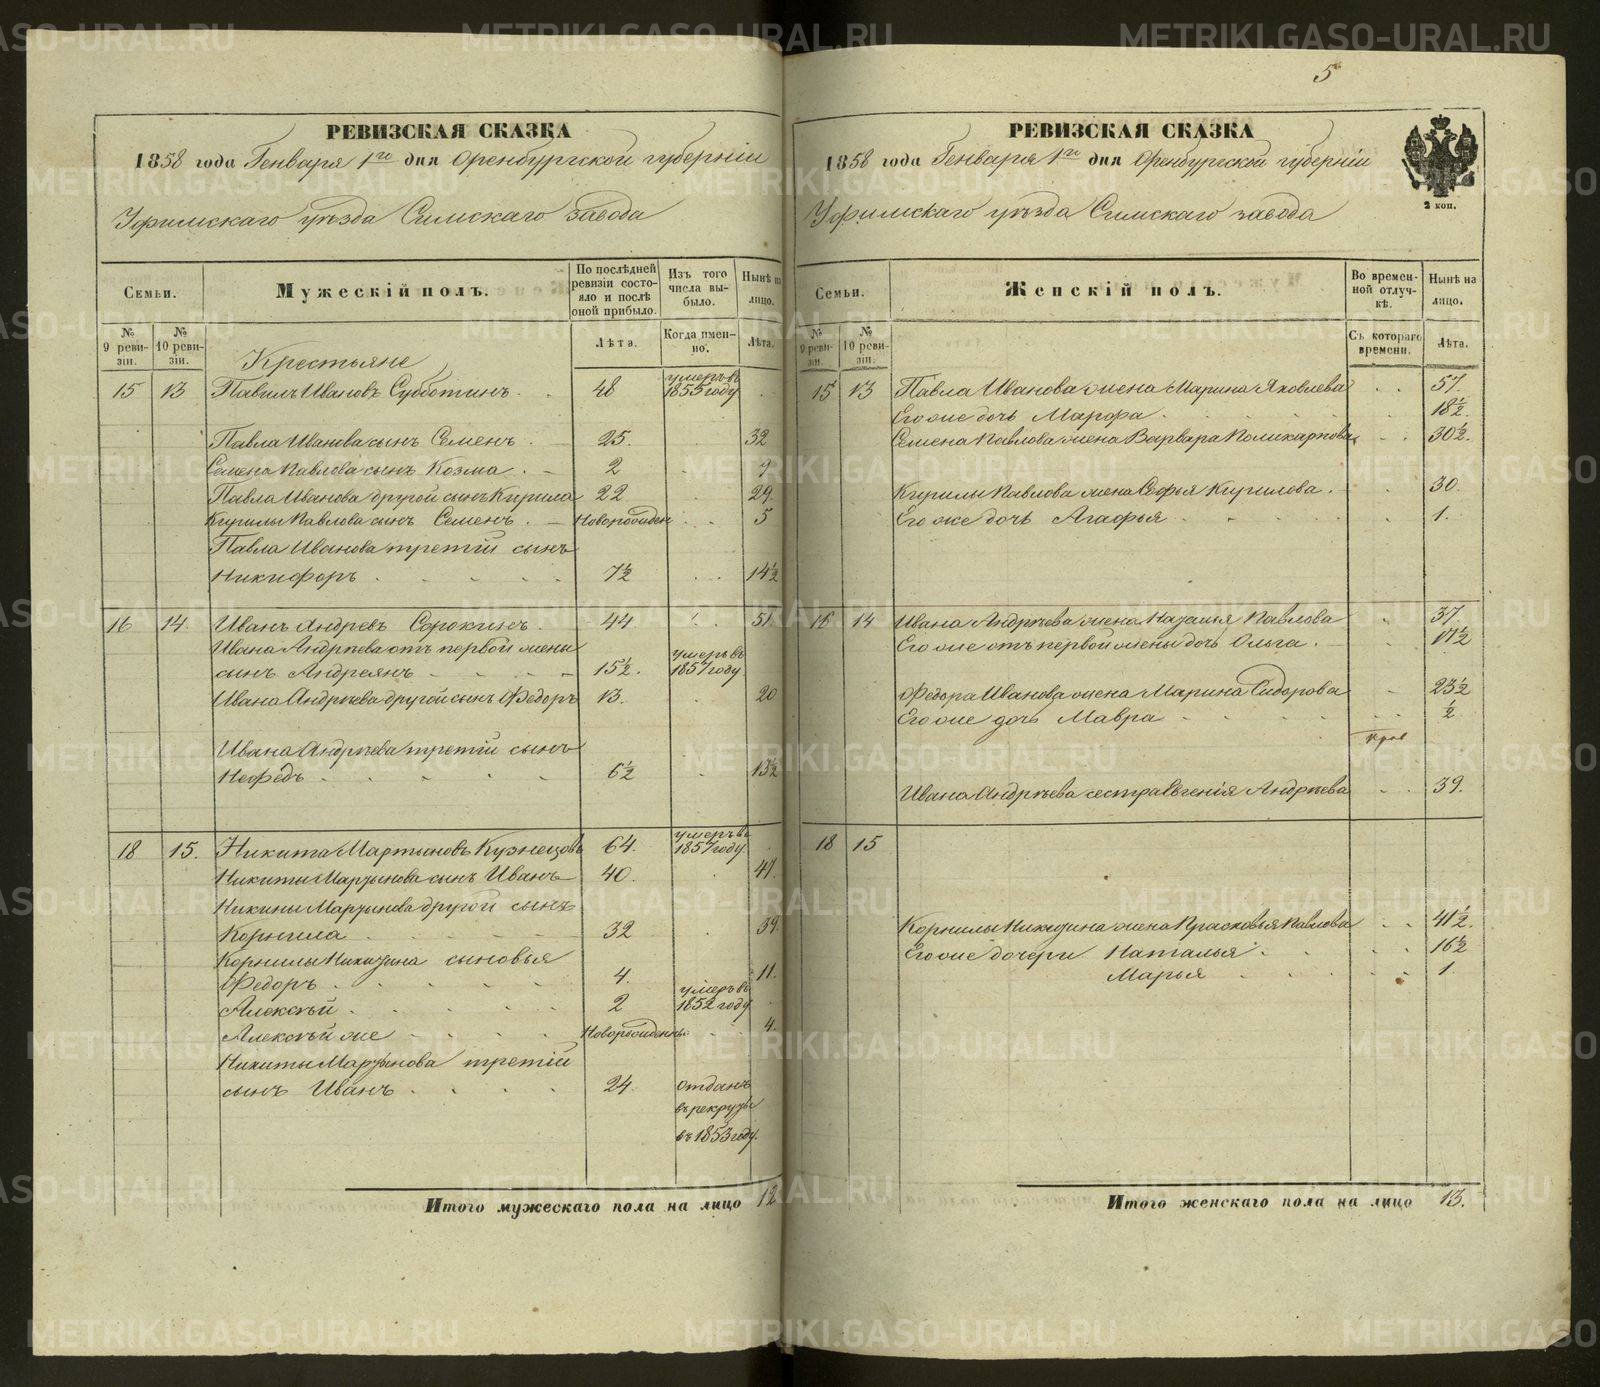 5
РЕВИЗСКАЯ СКАЗКА
1858 года Генваря 1го дня Оренбургской губерніи
Уфимскаго уѣзда Симскаго завода
Семьи.
Мужескій полъ.
По послѣдней ревизіи состояло и послѣ оной прибыло.
Изъ того числа выбыло.
Нынѣ на лицо.
№ 9 ревизіи.
№ 10 ревизіи.
Лѣта.
Когда именно.
Лѣта.
Крестьяне
15 13 Павилъ Ивановъ Субботинъ. 48 умеръ въ 1855 году
Павла Иванова сынъ Семенъ. 25. 32
Семена Павлова сынъ Козма. 2 9
Павла Иванова другой сынъ Кирила 22 29.
Кирилы Павлова сынъ Семенъ. Новорожден 5
Павла Иванова третій сынъ
Никифоръ 7½ 14½
16 14. Иванъ Андреевъ Сорокинъ. 44 51.
Ивана Андрѣева отъ первой жены
сынъ Андреянъ 15½. умеръ въ 1857 году
Ивана Андрѣева другой сынъ Федоръ 13. 20
Ивана Андрѣева третій сынъ
Нефедъ 6½ 13½
18 15. Никита Мартыновъ Кузнецовъ 64. умеръ въ 1857 году
Никиты Мартынова сынъ Иванъ 40. 47.
Никиты Мартынова другой сынъ
Корнила 32 39
Корнилы Никитина сыновья
Федоръ 4. 11.
Алексѣй 2 умеръ въ 1852 году
Алексѣй же Новорожденъ 4.
Никиты Мартынова третій
сынъ Иванъ 24. отданъ
въ рекруты
въ 1853 году.
Итого мужескаго пола на лицо 12
РЕВИЗСКАЯ СКАЗКА
1858 года Генваря 1го дня Оренбургской губерніи
Уфимскаго уѣзда Симскаго завода
2 коп.
Семьи.
Женскій полъ.
Во временной отлучкѣ.
Нынѣ на лицо.
№ 9 ревизіи.
№ 10 ревизіи.
Съ котораго времени.
Лѣта.
15 13 Павла Иванова жена Марина Яковлева 57.
Его же дочь Марфа 18½.
Семена Павлова жена Варвара Поликарпова 30½.
Кирилы Павлова жена Софья Кирилова. 30.
Его же дочь Агафья 1.
16 14 Ивана Андрѣева жена Наталья Павлова 37.
Его же отъ первой жены дочь Ольга. 17½
Федора Иванова жена Марина Сидорова 23½
Его же дочь Мавра ½
Ивана Андрѣева сестра Евгенія Андрѣева 39.
18 15
Корнилы Никитина жена Прасковья Павлова 41½.
Его же дочери Наталья 16½
Марья 1
Итого женскаго пола на лицо 13.
METRIKI.GASO-URAL.RU